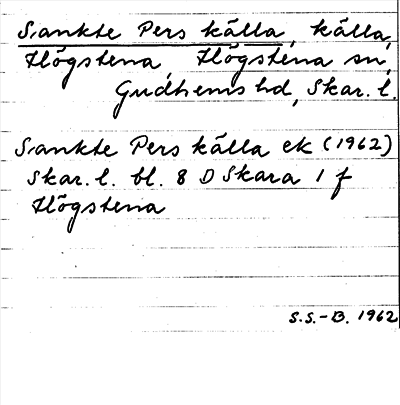 Sankte Pers källa, källa,
Högstena Högstena sn,
Gudhems hd, Skar. l.
Sankte Pers källa ek (1962)
Skar. l. bl. 8 D Skara 1 f
Högstena
S.S.-B. 1962